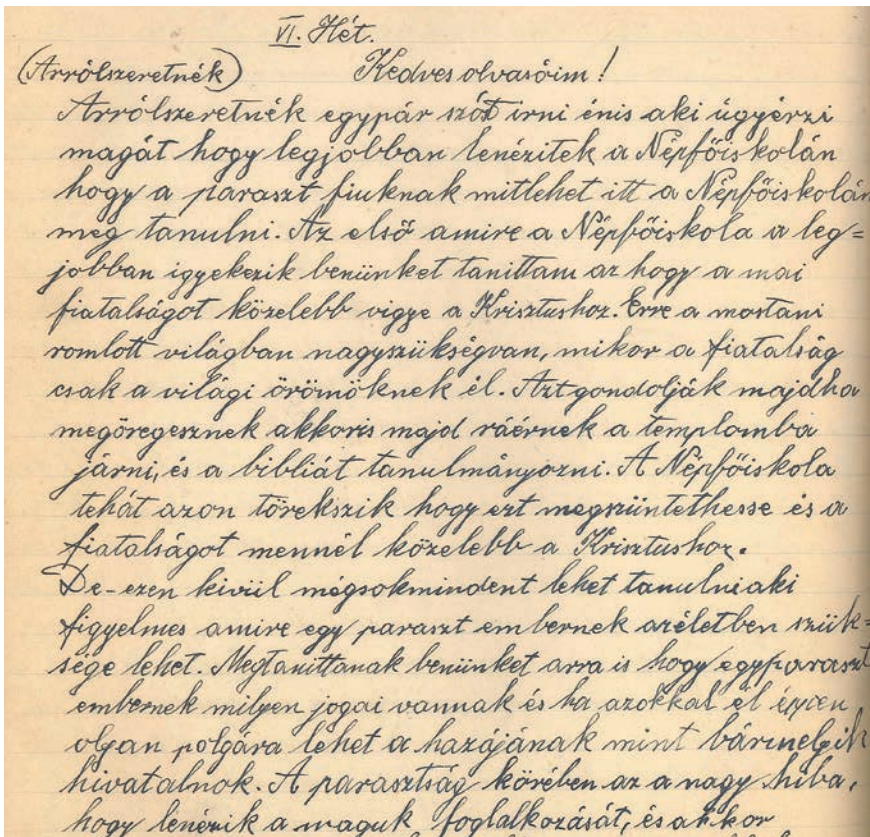 VI. Hét.
(Arrólszeretnék) Kedves olvasóim!
Arrólszeretnék egypár szót irni énis aki úgyérzi
magát hogy legjobban lenézitek a Népfőiskolán
hogy a paraszt fiuknak mitlehet itt a Népfőiskolán
meg tanulni. Az első amire a Népfőiskola a leg=
jobban igyekezik benünket tanittani az hogy a mai
fiatalságot közelebb vigye a Krisztushoz. Erre a mostani
romlott világban nagyszükségvan, mikor a fiatalság
csak a világi örömöknek él. Aztgondolják majdha
megöregesznek akkoris majd ráérnek a templomba
járni, és a bibliát tanulmányozni. A Népfőiskola
tehát azon törekszik hogy ezt megszüntethesse és a
fiatalságot mennél közelebb a Krisztushoz.
De-ezen kivül mégsokmindent lehet tanulniaki
figyelmes amire egy paraszt embernek azéletben szük=
sége lehet. Megtanittanak benünket arra is hogy egyparaszt
embernek milyen jogai vannak és ha azokkal él éppen
olyan polgára lehet a hazájának mint bármelyik
hivatalnok. A parasztság körében az a nagy hiba,
hogy lenézik a maguk foglalkozását, és akkor